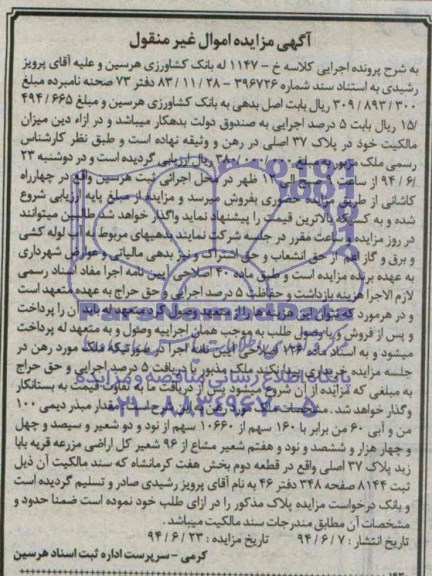 آگهی مزایده اموال غیر منقول
به شرح پرونده اجرایی کلاسه خ - ۱۱۴۷ له بانک کشاورزی هرسین و علیه آقای پرویز
رشیدی به استناد سند شماره ۳۹۶۷۲۶ - ۸۳/۱۱/۲۸ دفتر ۷۳ صحنه نامبرده مبلغ
۳۰۹/۸۹۳/۳۰۰ ریال بابت اصل بدهی به بانک کشاورزی هرسین و مبلغ ۴۹۴/۶۶۵
/۱۵ ریال بابت ۵ درصد اجرایی به صندوق دولت بدهکار میباشد و در ازاء دین میزان
مالکیت خود در پلاک ۳۷ اصلی در رهن و وثیقه نهاده است و طبق نظر کارشناس
رسمی ملک مزبور به مبلغ ریال ارزیابی گردیده است و در دوشنبه ۲۳
/۹۴/۶ از ساعت ۱۲ ظهر در محل اجرائی ثبت هرسین واقع در چهارراه
کاشانی از طریق مزایده حضوری بفروش میرسد و مزایده از مبلغ پایه ارزیابی شروع
شده و به کسیکه بالاترین قیمت را پیشنهاد نماید واگذار خواهد شد طالبین میتوانند
در روز مزایده و ساعت مقرر در جلسه شرکت نمایند بدهیهای مربوط به آب لوله کشی
و برق و گاز اعم از حق انشعاب و حق اشتراک و نیز بدهی مالیاتی و عوارض شهرداری
به عهده برنده مزایده است و طبق ماده ۴۰ اصلاحی آیین نامه اجرا مفاد اسناد رسمی
لازم الاجرا هزینه بازداشت و حفاظت ۵ درصد اجرایی و حق حراج به عهده متعهد است
و در هرمورد که نتوان این هزینه ها را از متعهد وصول کرد متعهد له باید آن را پرداخت
و پس از فروش و یا وصول طلب به موجب همان اجراییه وصول و به متعهد له پرداخت
میشود و به استناد ماده ۱۲۶ اصلاحی آیین نامه اجرا در صورتیکه ملک مورد رهن در
جلسه مزایده خریداری پیدا نکند ملک مذبور با دریافت ۵ درصد اجرایی و حق حراج
به مبلغی که مزایده از آن شروع میشود پس از دریافت تفاوت قیمت به بستانکار
وگذار خواهد شد. مشخصات ملک مورد رهن مقدار مبذر دیمی ۱۰۰
من و آبی ۶۰ من برابر با ۱۶۰ سهم از ۱۰۶۶۰ سهم از نود و دو شعیر و سیصد و چهل
و چهار هزار و ششصد و نود و هفتم شعیر مشاع از ۹۶ شعیر کل اراضی مزرعه قریه بابا
زید پلاک ۳۷ اصلی واقع در قطعه دوم بخش هفت کرمانشاه که سند مالکیت آن ذیل
ثبت ۸۱۴۴ صفحه ۳۴۸ دفتر ۴۶ به نام آقای پرویز رشیدی صادر و تسلیم گردیده است
و بانک درخواست مزایده پلاک مذکور را در ازای طلب خود نموده است ضمنا حدود و
مشخصات آن مطابق مندرجات سند مالکیت میباشد.
تاریخ انتشار : ۹۴/۶/۷ تاریخ مزایده : ۹۴/۶/۲۳
کرمی - سرپرست اداره ثبت اسناد هرسین
پایگاه اطلاع رسانی مناقصه و مزایده